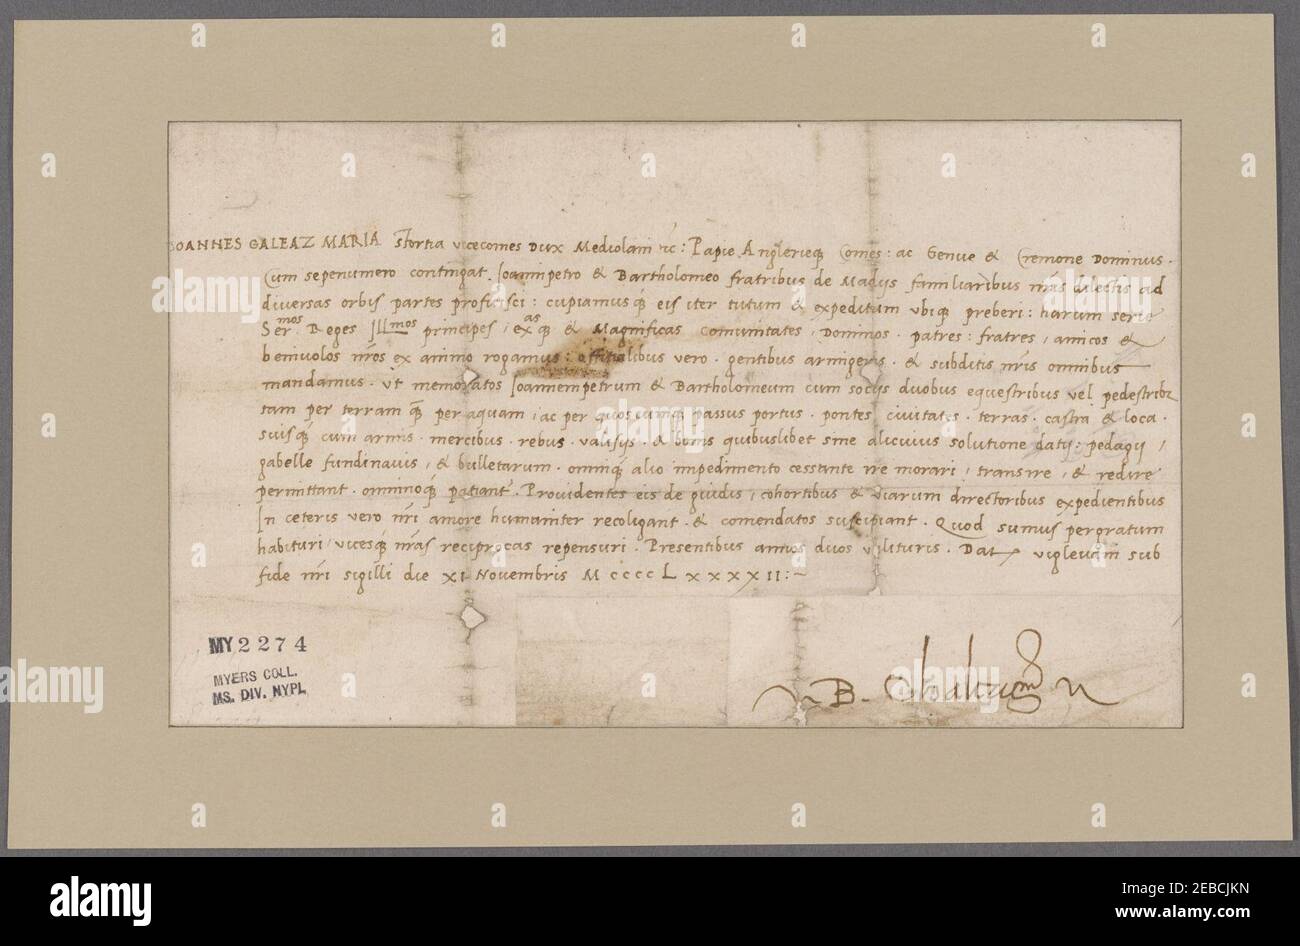 IOANNES GALEAZ MARIA Sfortia vicecomes Dux Mediolani &c: Papie Anglerieq3 Comes: ac Genue & Cremone Dominus.
Cum sepenumero contingat. Ioannipetro & Bartholomeo fratribus de Madijs familiaribus nr̃is dilectis ad
diversas orbis partes proficisci: cupiamusq3 eis iter tutum & expeditum ubiq3 preberi: harum serie
Sermos Reges Illmos principes, exasq3 & Magnificas comunitates, Dominos. patres: fratres, amicos &
benivolos nr̃os ex animo rogamus: offitialibus vero. gentibus armigeris. & subditis nr̃is omnibus
mandamus. Ut memoratos Ioannempetrum & Bartholomeum cum socijs duobus equestribus vel pedestribꝫ
tam per terram q3 per aquam, ac per quoscumq3 passus portus. pontes civitates. terras. castra & loca.
suisq3 cum armis. mercibus. rebus. valisijs. & bonis quibuslibet sine alicuius solutione datij: pedagij,
gabelle fundinavis, & bulletarum. omniq3 alio impedimento cessante ire morari, transire, & redire
permittant. omninoq3 patiant͛. Providentes eis de guidis, cohortibus & viarum directoribus expedientibus
In ceteris vero nr̃i amore humaniter recoligant. & comendatos suscipiant. Quod sumus pergratum
habituri, vicesq3 nr̃as reciprocas repensuri. Presentibus annos duos valituris. Dat viglevani sub
fide nr̃i sigilli die XI Novembris M C C C C L X X X X I I :~
B. Chalcus
MY 2274
MYERS COLL.
MS. DIV. NYPL
alamy
Image ID: 2EBCJKN
www.alamy.com